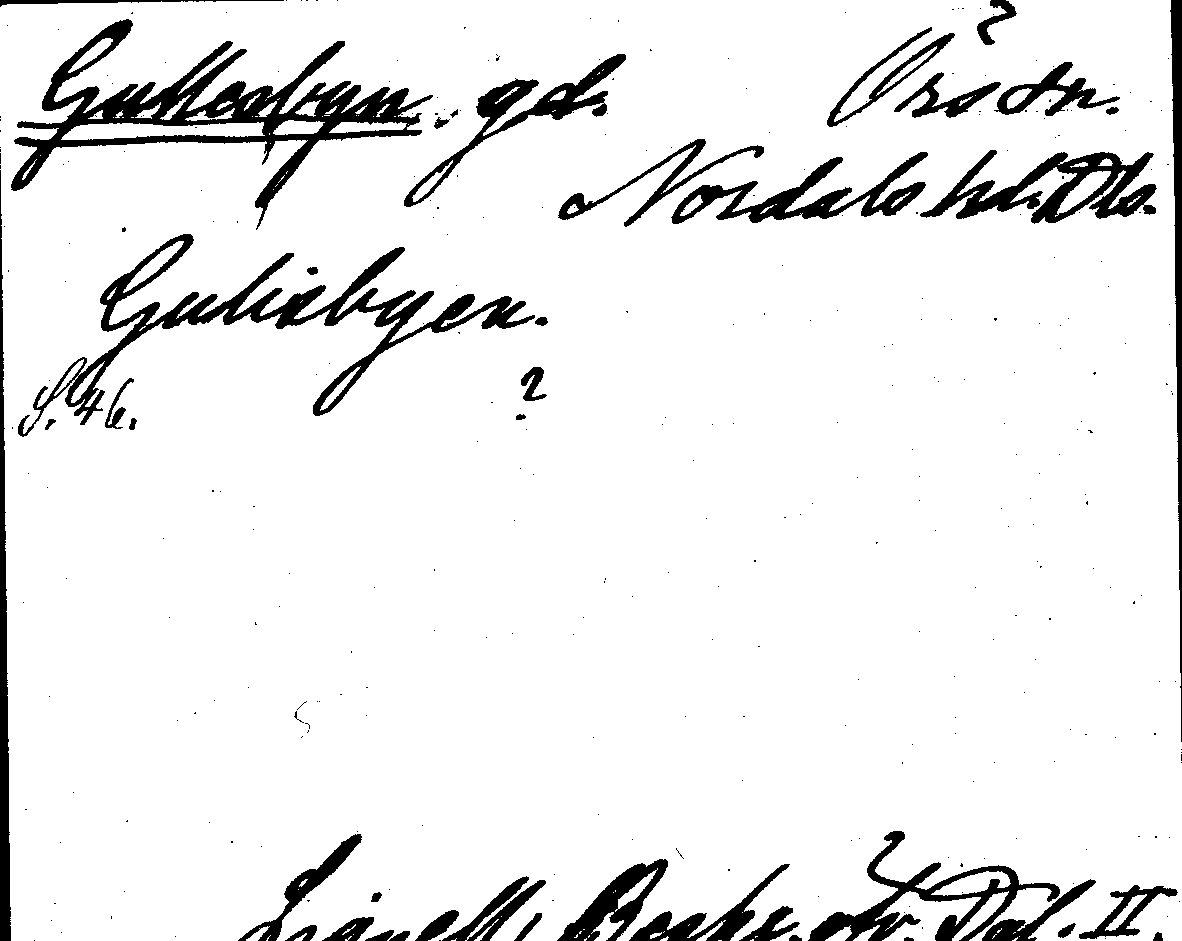 Gullesbyn, gd. Örs sn.
Nordals hd. Dls.
Gulisbyen.
S. 46. ?
Lignell, Beskr. öfv. Dal. II.